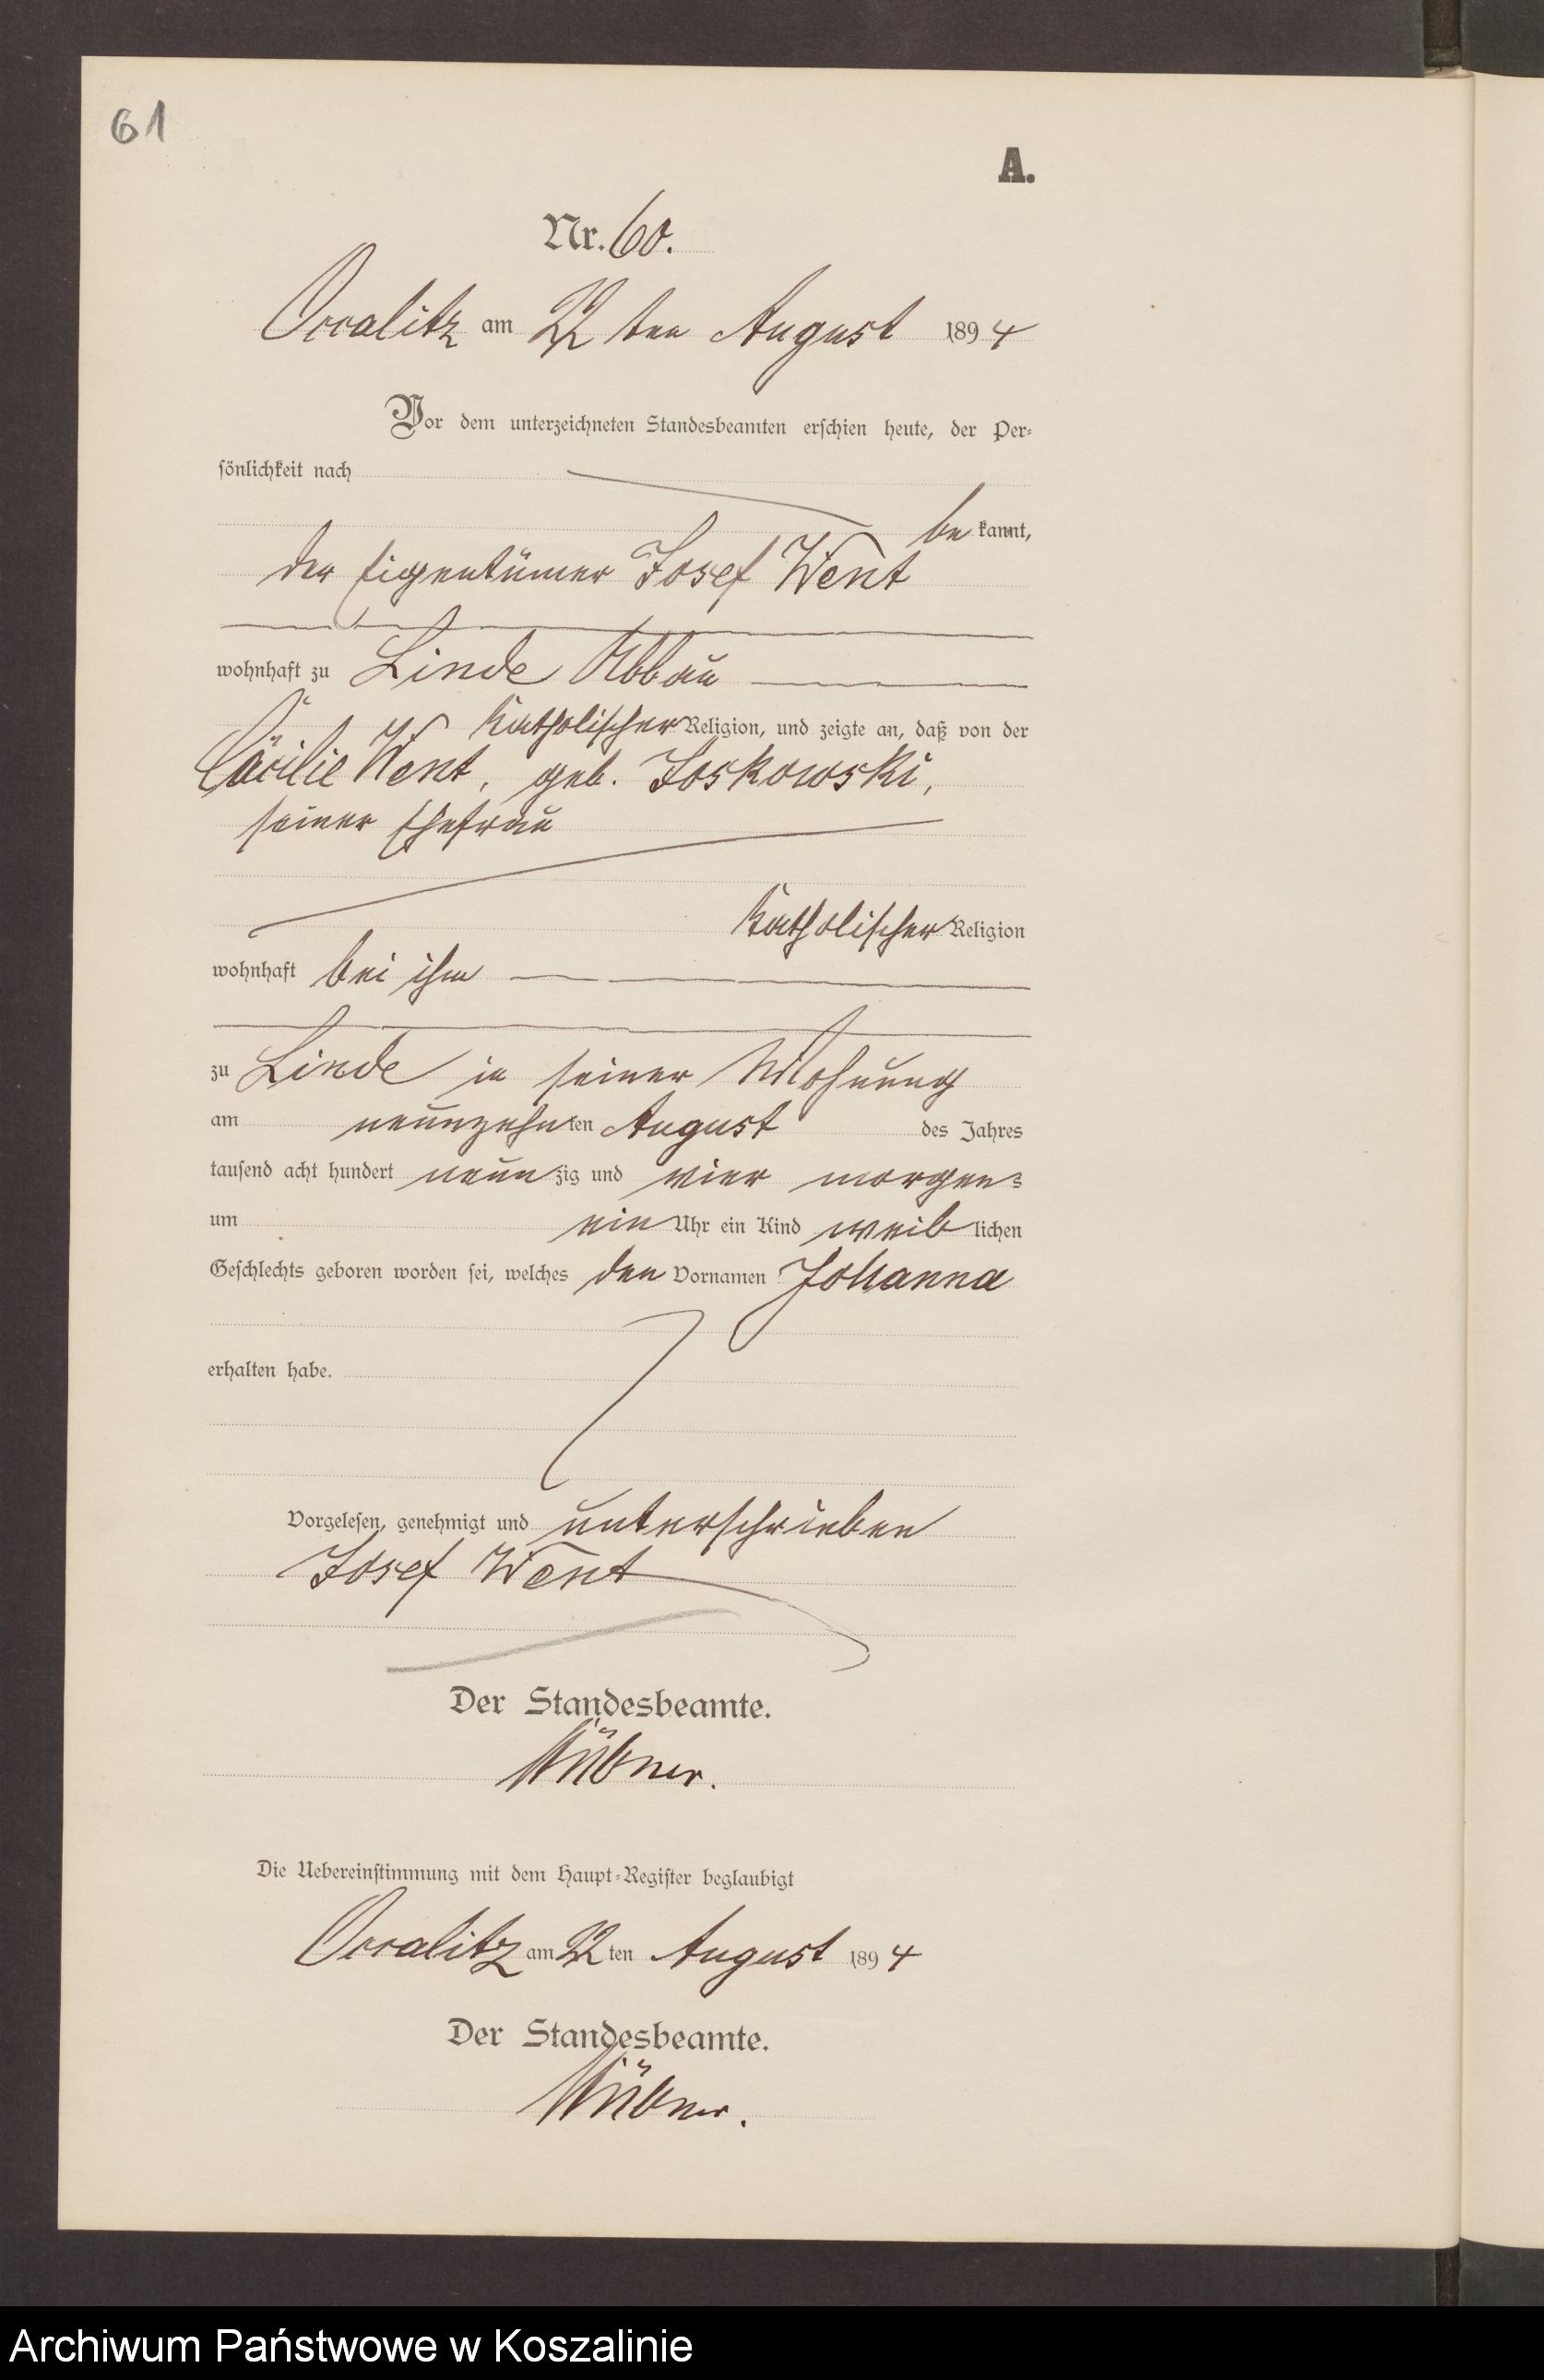 61
A.
Nr. 60.
Occalitz am 22 ten August 1894
Vor dem unterzeichneten Standesbeamten erschien heute, der Per-
sönlichkeit nach
be kannt,
der Eigentümer Josef Went
wohnhaft zu Linde Abbau
katholischer Religion, und zeigte an, daß von der
Cäcilie Went, geb. Joskowski,
seiner Ehefrau
katholischer Religion
wohnhaft bei ihm
zu Linde in seiner Wohnung
am neunzehnten August des Jahres
tausend acht hundert neunzig und vier morgens
um ein Uhr ein Kind weiblichen
Geschlechts geboren worden sei, welches den Vornamen Johanna
erhalten habe.
Vorgelesen, genehmigt und unterschrieben
Josef Went
Der Standesbeamte.
Die Uebereinstimmung mit dem Haupt-Register beglaubigt
Occalitz am 22 ten August 1894
Der Standesbeamte.
Archiwum Państwowe w Koszalinie